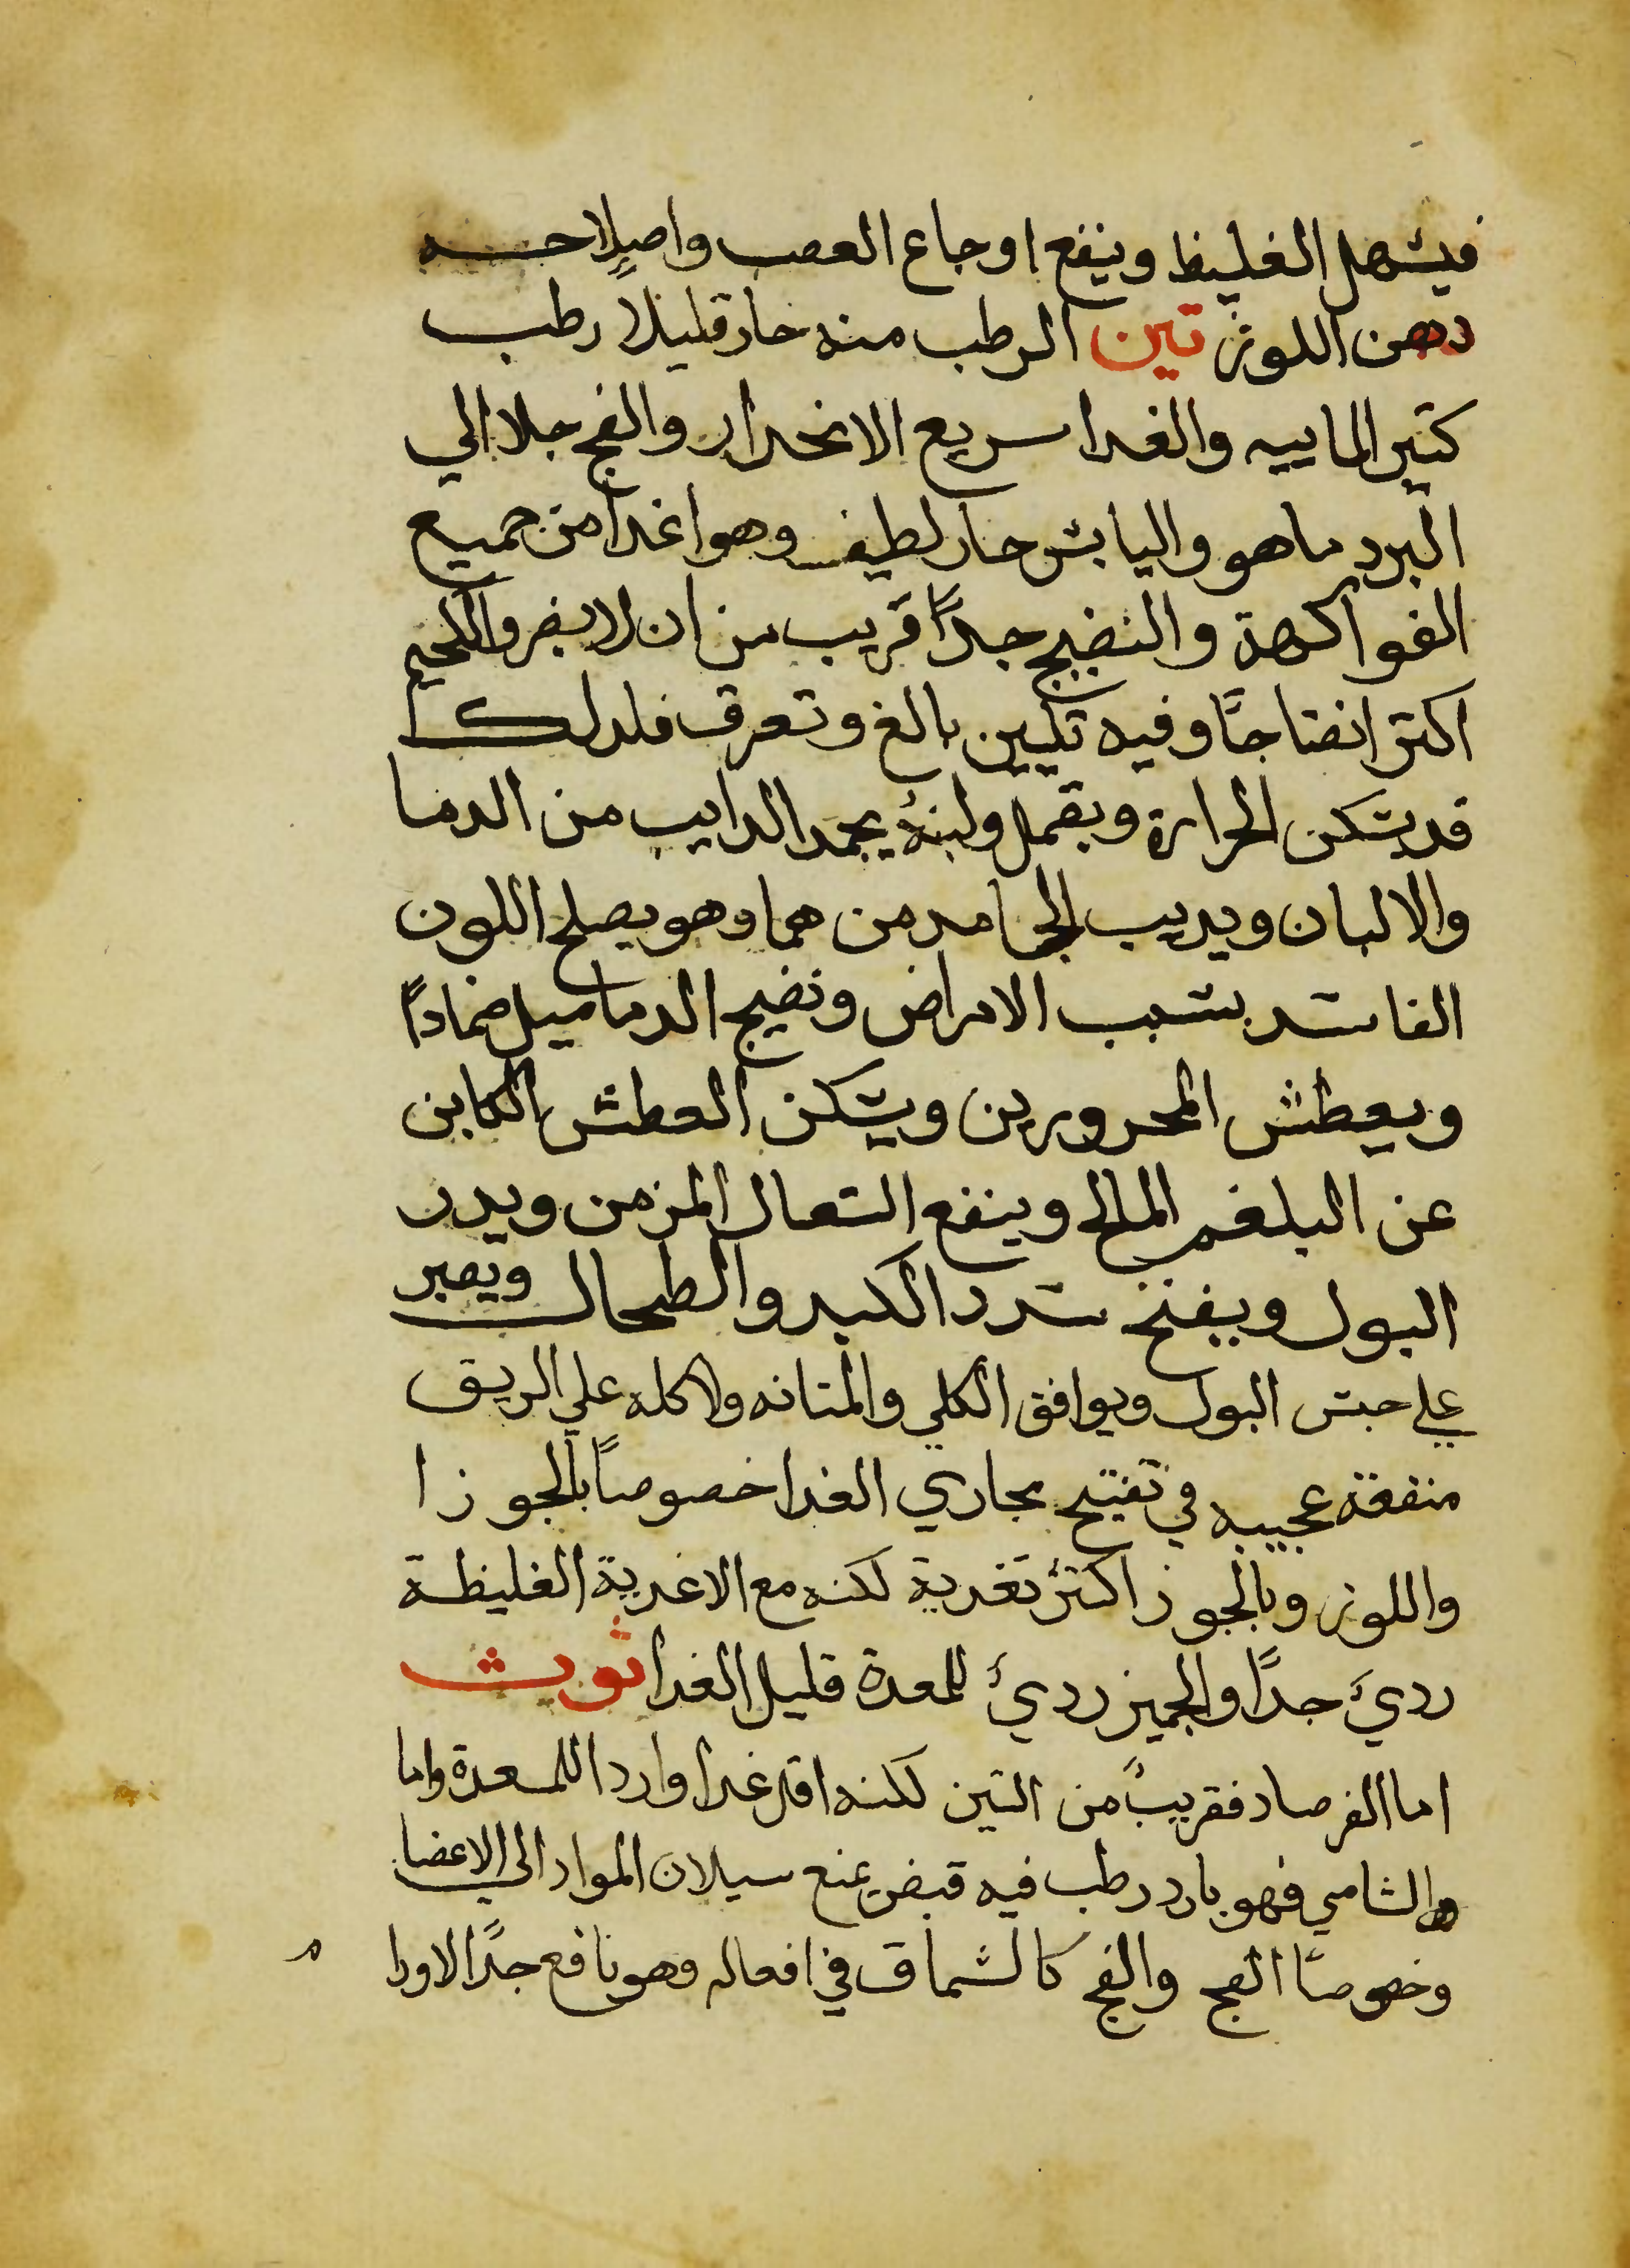 فيسهل الغليظ وينفع اوجاع العصب واصلاحه
دهن اللوز تين الرطب منه حار قليلا رطب
كتير الماييه والغدا سريع الانحدار والفج جلا الي
البرد ماهو واليابس حار لطيف وهو اغدا من جميع
الفواكهة والنضيج جدًا قريب من ان لا يضر واللحيم
اكتر انضاجًا وفيه تليين بالغ وتعرق فلدلك
قد يسكن الحرارة ويقمل ولبنهُ يجمد الدايب من الدما
والالبان ويديب الجامد من هما وهو يصلح اللون
الفاسد بسبب الامراض ونضيج الدماميل ضمادًا
ويعطش المحرورين ويسكن العطش الكاين
عن البلغم المالح وينفع السعال المزمن ويدر
البول ويفتح سدد الكبد والطحال ويصبر
علي حبس البول ويوافق الكلي والمتانه ولاكله علي الريق
منفعه عجيبه في تفتيح مجاري الغدا خصوصًا بالجوز ا
واللوز وبالجوز اكتر تغدية لكنه مع الاغدية الغليظة
رديَ جدًا والجميز رديَ للمعدة قليل الغدا ثوث
اما الفرصاد فقريبٌ من التين لكنه اقل غدا واردا للمعدة واما
والشامي فهو بارد رطب فيه قبض يمنع سيلان المواد الي الاعضا
وخصوصًا الفج والفج كالسماق في افعاله وهو نافع جدًا الاورا